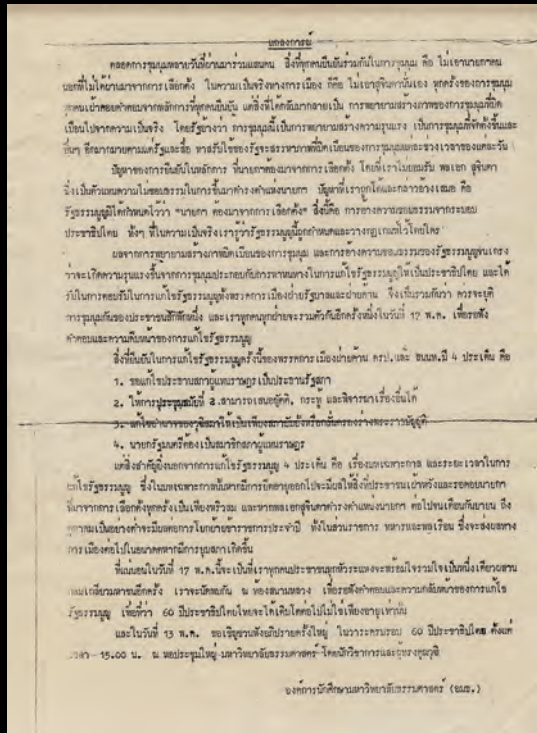 แถลงการณ์
ตลอดการชุมนุมหลายวันที่ผ่านมาร่วมแสนคน สิ่งที่ทุกคนยืนยันร่วมกันในการชุมนุม คือ ไม่เอานายกคน
นอกที่ไม่ได้ผ่านมาจากการเลือกตั้ง ในความเป็นจริงทางการเมือง ก็คือ ไม่เอาสุจินดานั่นเอง ทุกครั้งของการชุมนุม
ทุกคนเฝ้าคอยคำตอบจากหลักการที่ทุกคนยืนยัน แต่สิ่งที่ได้กลับมากลายเป็น การพยายามสร้างภาพของการชุมนุมที่บิด
เบือนไปจากความเป็นจริง โดยรัฐอ้างว่า การชุมนุมนี้เป็นการพยายามสร้างความรุนแรง เป็นการชุมนุมที่จัดตั้งขึ้นและ
อื่นๆ อีกมากมายตามแต่รัฐและสื่อ ทาสรับใช้ของรัฐจะสรรหาภาพที่บิดเบือนของการชุมนุมแต่ละช่วงเวลาของแต่ละวัน
ปัญหาของการยืนยันในหลักการ ที่นายกฯต้องมาจากการเลือกตั้ง โดยที่เราไม่ยอมรับ พลเอก สุจินดา
ซึ่งเป็นตัวแทนความไม่ชอบธรรมในการขึ้นมาดำรงตำแหน่งนายกฯ ปัญหาที่เราถูกโต้และกล่าวอ้างเสมอ คือ
รัฐธรรมนูญมิได้กำหนดไว้ว่า "นายกฯ ต้องมาจากการเลือกตั้ง" สิ่งนี้คือ การอ้างความชอบธรรมจากระบอบ
ประชาธิปไตย ทั้งๆ ที่ในความเป็นจริงเรารู้ว่ารัฐธรรมนูญนี้ถูกกำหนดและวางกฎเกณฑ์ไว้โดยใคร
ผลจากการพยายามสร้างภาพบิดเบือนของการชุมนุม และการอ้างความชอบธรรมของรัฐธรรมนูญจนเกรง
ว่าจะเกิดความรุนแรงขึ้นจากการชุมนุมประกอบกับการหาหนทางในการแก้ไขรัฐธรรมนูญให้เป็นประชาธิปไตย และได้
รับในการตอบรับในการแก้ไขรัฐธรรมนูญทั้งพรรคการเมืองฝ่ายรัฐบาลและฝ่ายค้าน จึงเห็นร่วมกันว่า ควรจะยุติ
การชุมนุมกันของประชาชนสักพักหนึ่ง และเราทุกคนทุกฝ่ายจะรวมตัวกันอีกครั้งหนึ่งในวันที่ 17 พ.ค. เพื่อรอฟัง
คำตอบและความคืบหน้าของการแก้ไขรัฐธรรมนูญ
สิ่งที่ยืนยันในการแก้ไขรัฐธรรมนูญครั้งนี้ของพรรคการเมืองฝ่ายค้าน ครป.และ สนนท.มี 4 ประเด็น คือ
1. ขอแก้ไขประธานสภาผู้แทนราษฎรเป็นประธานรัฐสภา
2. ให้การประชุมสมัยที่ 2 สามารถเสนอญัตติ, กระทู้ และพิจารณาเรื่องอื่นได้
3. แก้ไขอำนาจของวุฒิสภาให้เป็นเพียงสภายับยั้งหรือกลั่นกรองร่างพระราชบัญญัติ
4. นายกรัฐมนตรีต้องเป็นสมาชิกสภาผู้แทนราษฎร
แต่สิ่งสำคัญยิ่งนอกจากการแก้ไขรัฐธรรมนูญ 4 ประเด็น คือ เรื่องบทเฉพาะกาล และระยะเวลาในการ
แก้ไขรัฐธรรมนูญ ซึ่งในบทเฉพาะกาลนั้นหากมีการยืดอายุออกไปจะมีผลให้สิ่งที่ประชาชนเฝ้าหวังและรอคอยนายกฯ
ที่มาจากการเลือกตั้งทุกครั้งเป็นเพียงหริวลม และหากพลเอกสุจินดาดำรงตำแหน่งนายกฯ ต่อไปจนเดือนกันยายน ถึง
ตุลาคมเป็นอย่างต่ำจะมีผลต่อการโยกย้ายข้าราชการประจำปี ทั้งในส่วนราชการ ทหารและพลเรือน ซึ่งจะส่งผลทาง
การเมืองต่อไปในอนาคตหากมีการยุบสภาเกิดขึ้น
ที่แน่นอนในวันที่ 17 พ.ค.นี้จะเป็นที่เราทุกคนประชาชนทุกหัวระแหงจะพร้อมใจรวมใจเป็นหนึ่งเดียวสาน
เกลียวมหาชนอีกครั้ง เราจะนัดพบกัน ณ ท้องสนามหลวง เพื่อรอฟังคำตอบและความคืบหน้าของการแก้ไข
รัฐธรรมนูญ เพื่อที่ว่า 60 ปีประชาธิปไตยไทยจะได้เติบโตต่อไปไม่ใช่เพียงอายุเท่านั้น
และในวันที่ 13 พ.ค. ขอเชิญชวนฟังอภิปรายครั้งใหญ่ ในวาระครบรอบ 60 ปีประชาธิปไตย ตั้งแต่
เวลา - 15.00 น. ณ หอประชุมใหญ่ มหาวิทยาลัยธรรมศาสตร์ โดยนักวิชาการและผู้ทรงคุณวุฒิ
องค์การนักศึกษามหาวิทยาลัยธรรมศาสตร์ (อมธ.)